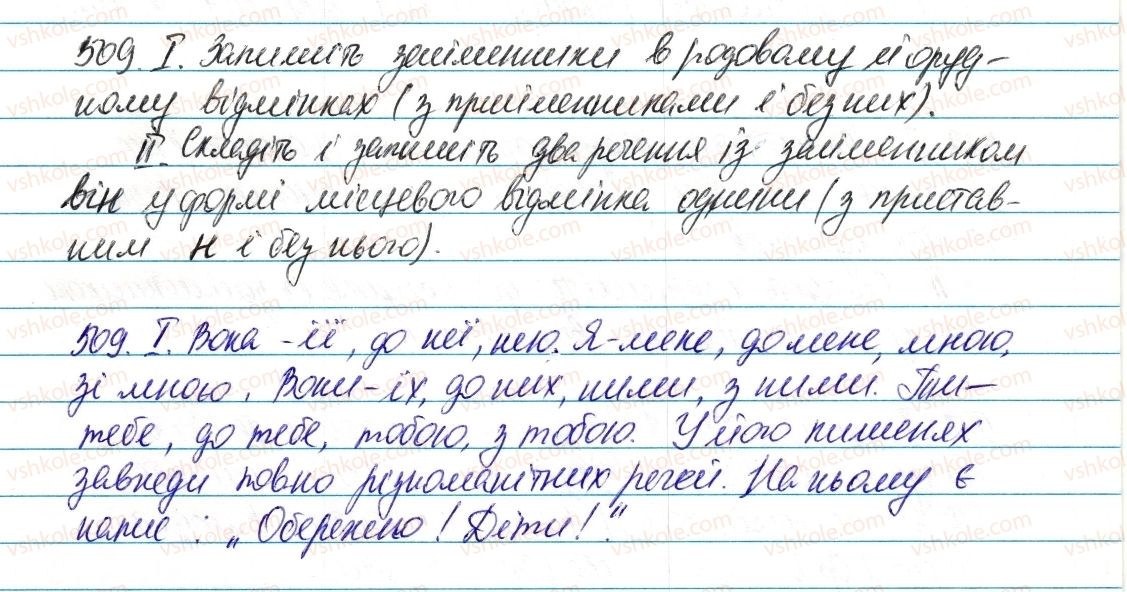 509. I. Запишіть займенники в родовому й оруд-
ному відмінках (з прийменниками і без них).
II. Складіть і запишіть два речення із займенником
він у формі місцевого відмінка однини (з пристав-
ним н і без нього).
509. I. Вона - її, до неї, нею. Я - мене, до мене, мною,
зі мною. Вони - їх, до них, ними, з ними. Ти -
тебе, до тебе, тобою, з тобою. У його кишенях
завжди повно різноманітних речей. На ньому є
напис: „Обережно! Діти!".